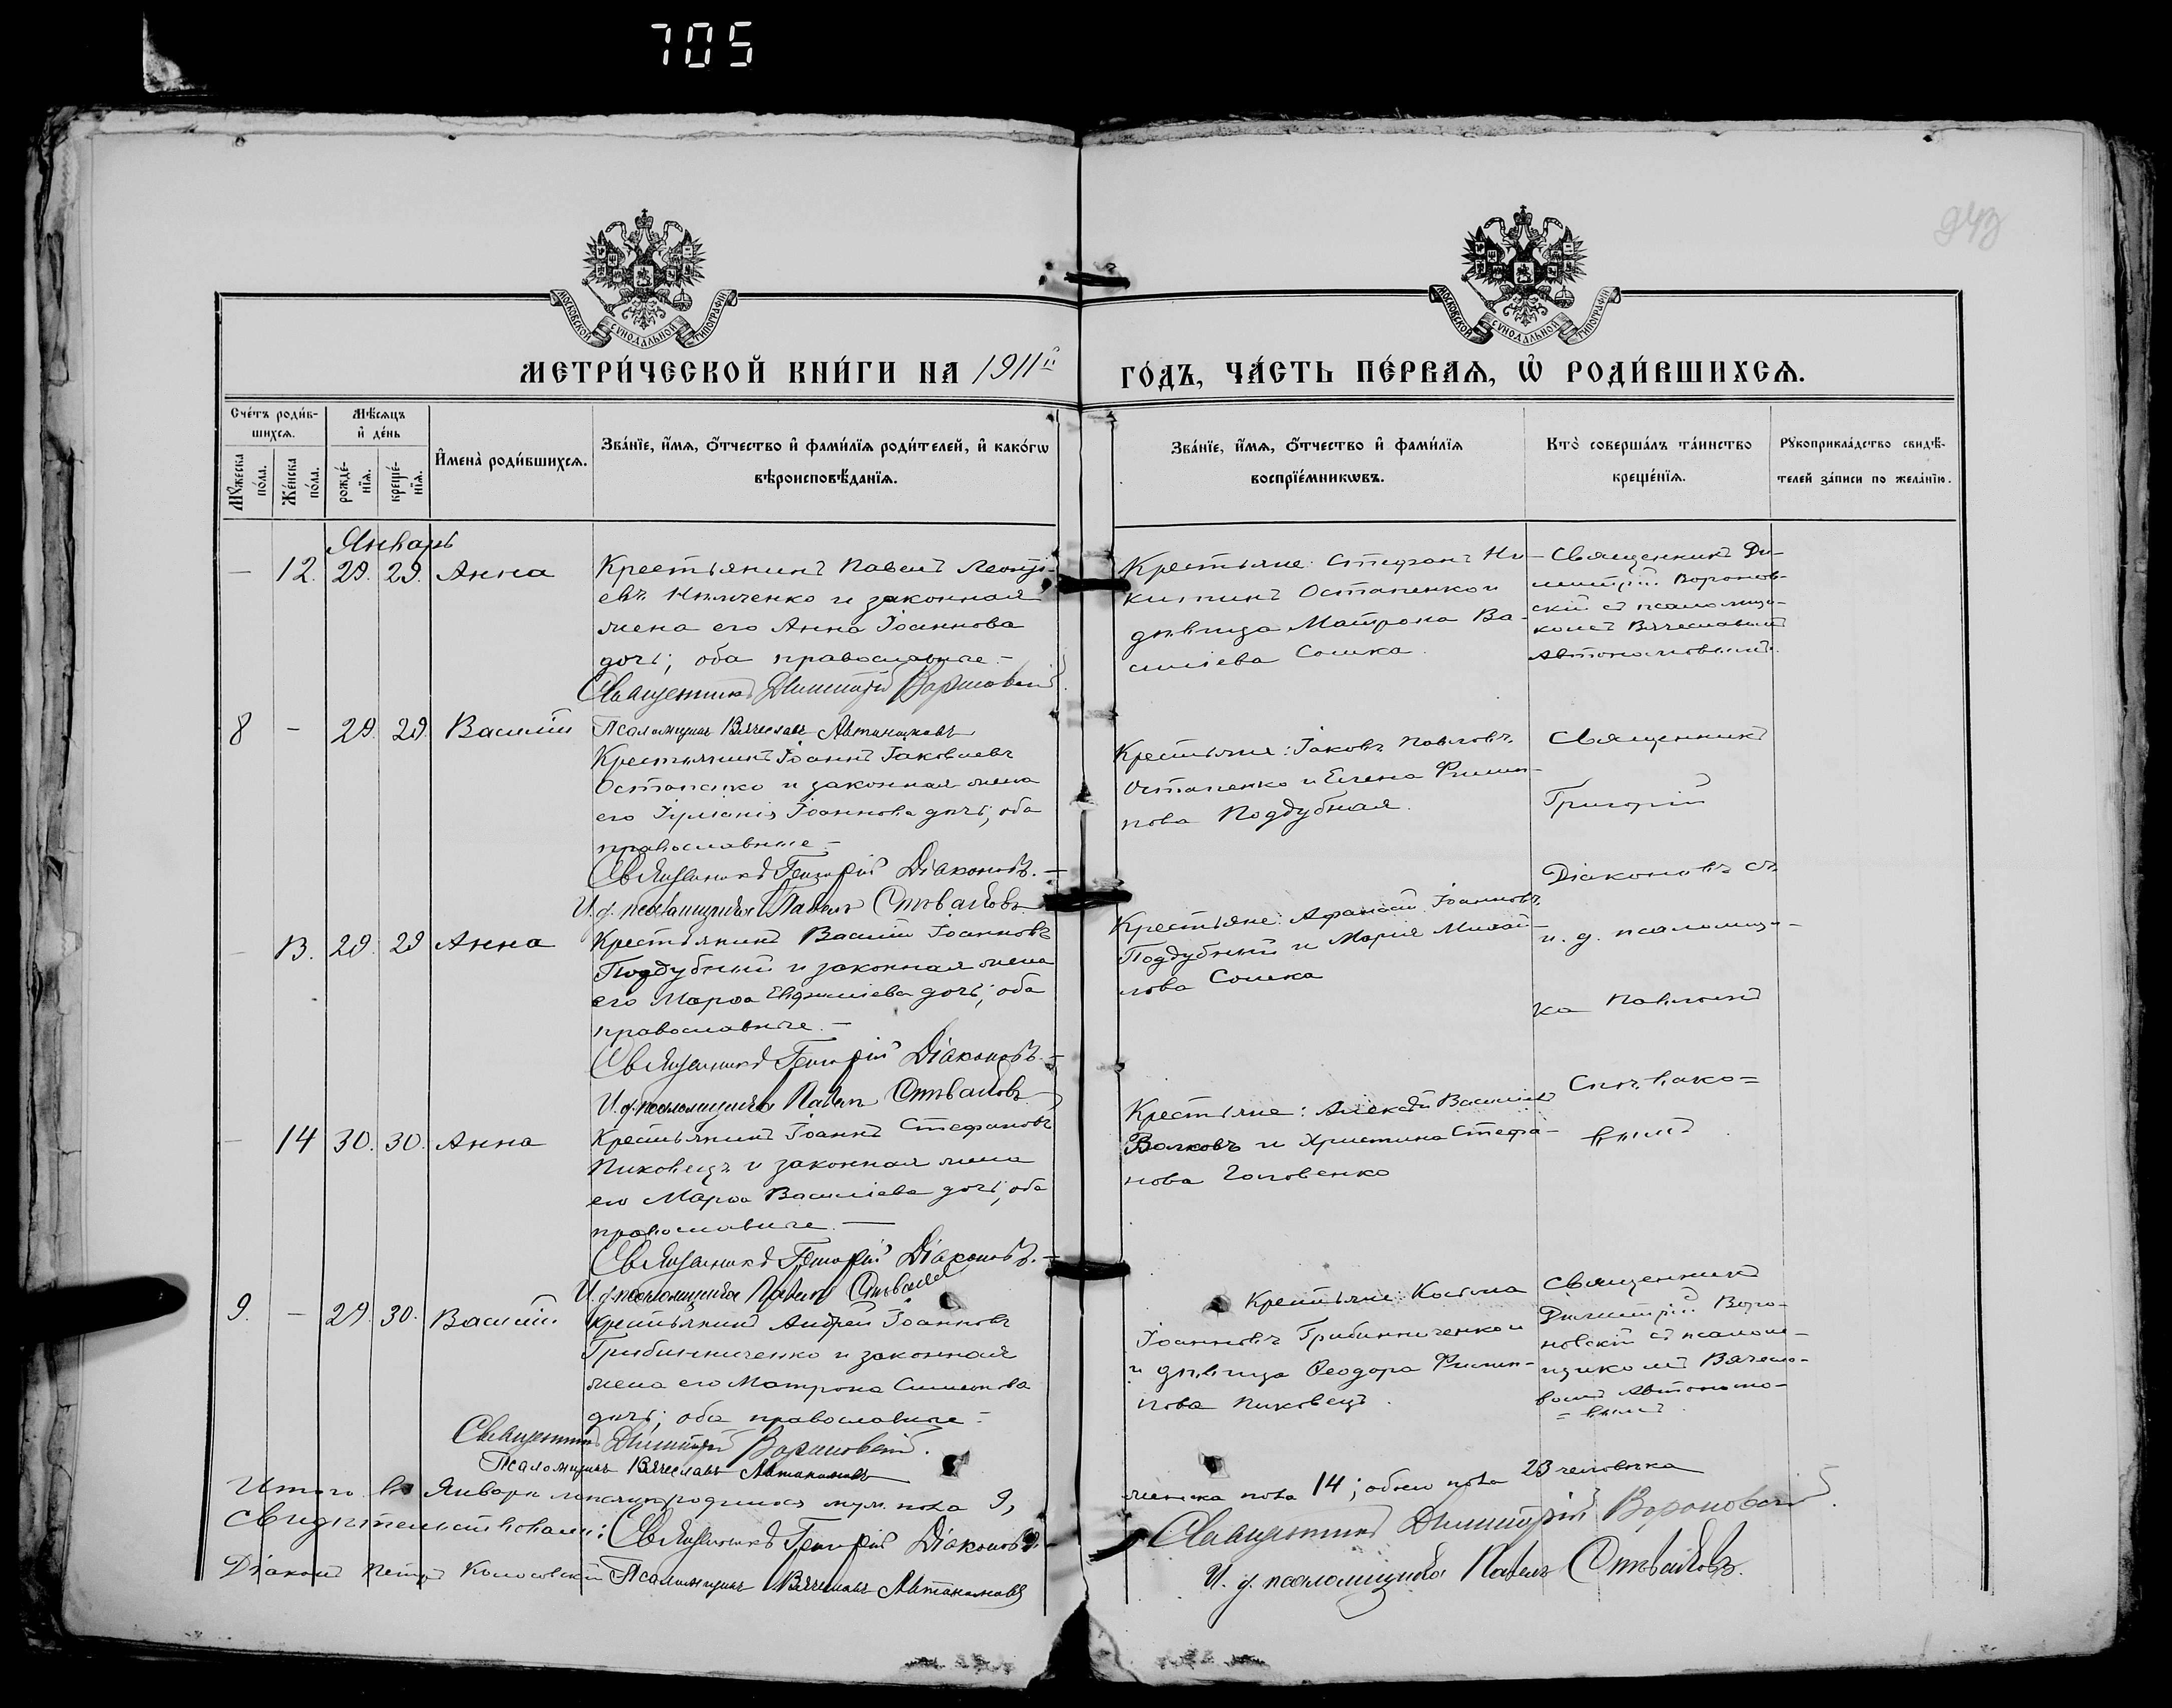 705
243
МОСКОВСКОЙ СѴНОДАЛЬНОЙ ТИПОГРАФІИ
МОСКОВСКОЙ СѴНОДАЛЬНОЙ ТИПОГРАФІИ
МЕТРИ́ЧЕСКОЙ КНИ́ГИ НА 1911й ГО́ДЪ, ЧА́СТЬ ПЕ́РВАЯ, Ѡ҆ РОДИ́ВШИХСЯ.
Сче́тъ роди́в-
шихся.
Мѣ́сяцъ
и҆ де́нь
Му́жеска по́ла.
Же́нска по́ла.
рожде́-нїя.
креще́-нїя.
И҆мена̀ роди́вшихся.
Зва́нїе, и҆́мя, ѻ҆́тчество и҆ фами́лїя роди́телей, и҆ како́гѡ
вѣроисповѣ́данїя.
Зва́нїе, и҆́мя, ѻ҆́тчество и҆ фами́лїя
воспрїе́мникѡвъ.
Кто̀ соверша́лъ та́инство
креще́нїя.
Рꙋкоприкла́дство свидѣ́-
телей за́писи по жела́нїю.
Январь
— 12. 29. 29. Анна
Крестьянинъ Павелъ Леонтi-
евъ Нимченко и законная
жена его Анна Іоаннова
дочь; оба православные.—
Священникъ Димитрій Вороновскій
Крестьяне: Стефанъ Ни-
китинъ Остапенко и
дѣвица Матрона Ва-
силіева Сошка.
Священникъ Ди-
митрій Воронов-
скій съ псаломщи-
комъ Вячеславомъ
Автономовымъ.
8 — 29. 29. Василій
Псаломщикъ Вячеславъ Автономовъ
Крестьянинъ Іоаннъ Іаковлевъ
Остапенко и законная жена
его Іуліанія Іоаннова дочь; оба
православные —
Священникъ Григорій Діаконовъ.—
И. д. псаломщика Павелъ
Крестьяне: Іаковъ Павловъ
Остапенко и Елена Филип-
пова Поддубная.
Священникъ
Григорій
Діаконовъ съ
и. д. псаломщи-
ка Павломъ
— 13. 29. 29 Анна
Крестьянинъ Василій Іоанновъ
Поддубный и законная жена
его Марѳа Евфиміева дочь; оба
православные.—
Священникъ Григорій Діаконовъ.—
И. д. псаломщика Павелъ
Крестьяне: Афанасій Іоанновъ
Поддубный и Марія Михай-
лова Сошка
— 14 30. 30. Анна
Крестьянинъ Іоаннъ Стефановъ
Пиковецъ и законная жена
его Марѳа Василіева дочь; оба
православные.—
Священникъ Григорій Діаконовъ.—
И. д. псаломщика Павелъ
Крестьяне: Алексѣй Василіевъ
Волковъ и Христина Стефа-
нова Головенко
9. — 29. 30. Василій
Крестьянинъ Андрей Іоанновъ
Грибинниченко и законная
жена его Матрона Симеонова
дочь; оба православные.—
Священникъ Димитрій Вороновскій.
Псаломщикъ Вячеславъ Автономовъ
Крестьяне: Косьма
Іоанновъ Грибинниченко и
и дѣвица Ѳеодора Филип-
пова Пиковецъ.
Священникъ
Димитрій Воро-
новскій съ псалом-
щикомъ Вячесла-
вомъ Автономо-
=вымъ.
Итого въ Январѣ мѣсяцѣ родилось муж. пола 9,
женска пола 14; обоего пола 23 человѣка
Свидѣтельствовали: Священникъ Григорій Діаконовъ.
Священникъ Димитрій Вороновскій.
Діаконъ Петръ Колосовскій Псаломщикъ Вячеславъ Автономовъ
И. д. псаломщика Павелъ